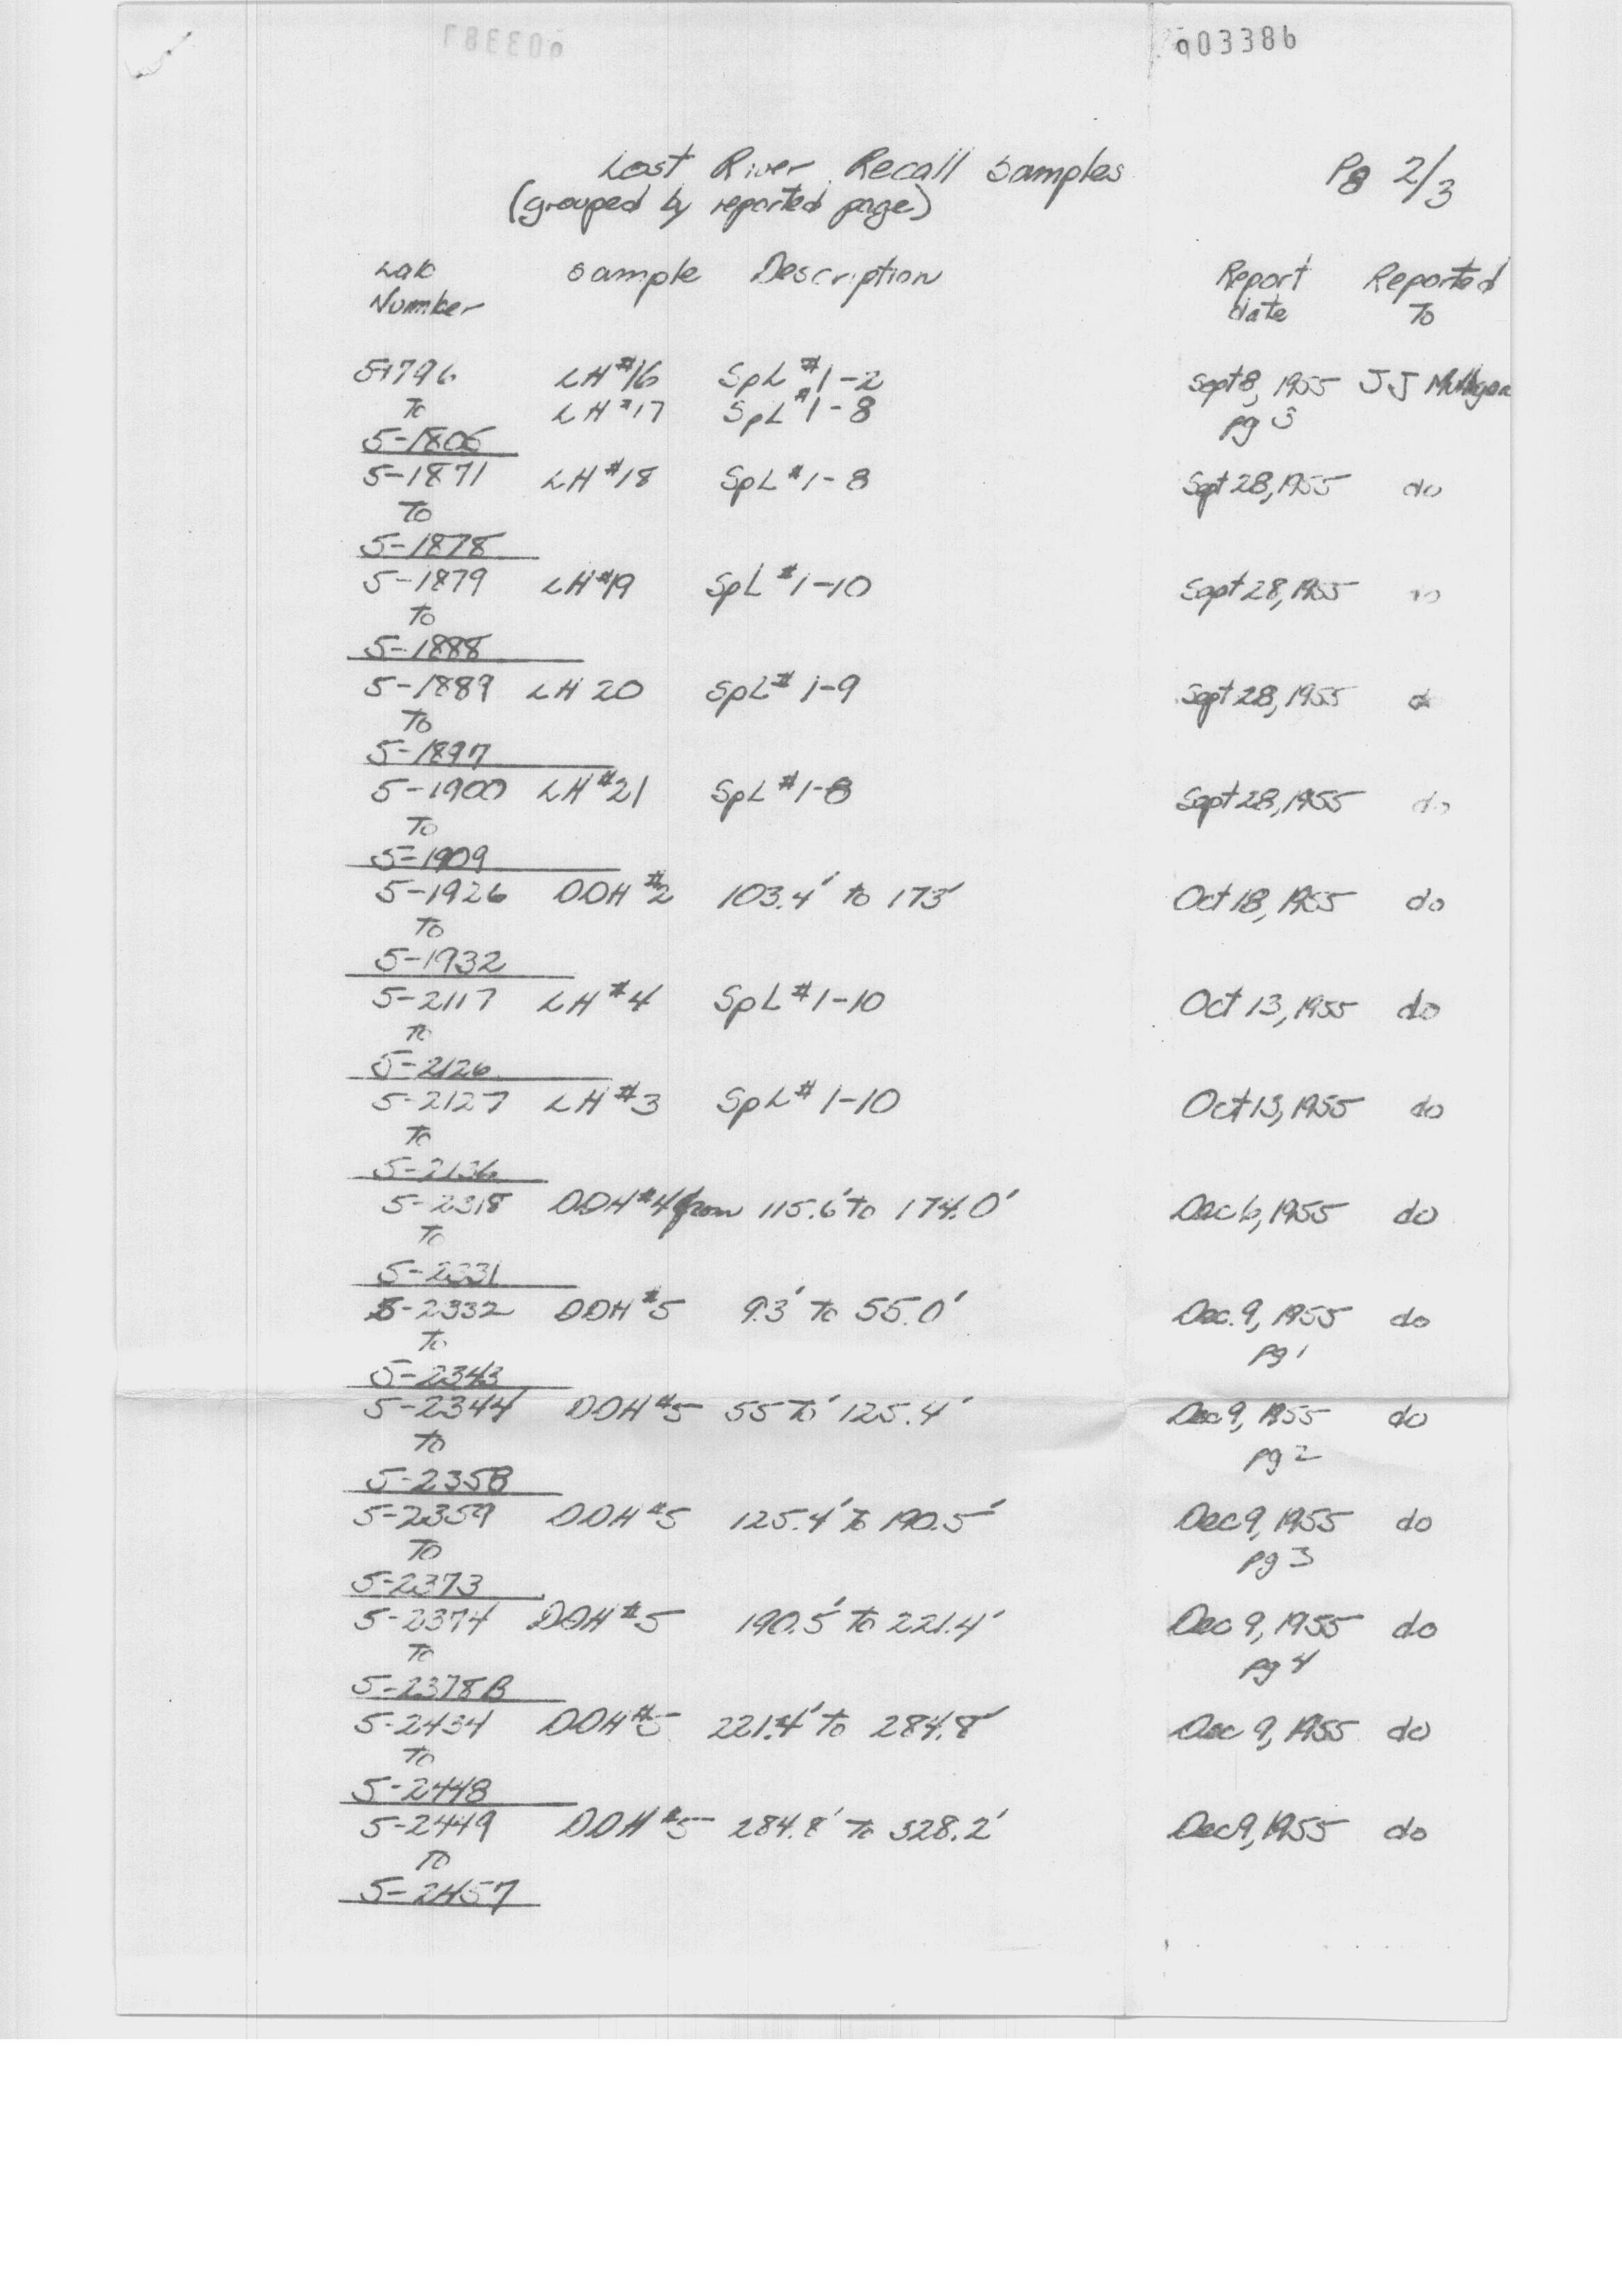 903386
Lost River Recall Samples Pg 2/3
(grouped by reported page)
Lab Sample Description Report Reported
Number date To
5-1796 LH #16 SpL #1-2 Sept 8, 1955 J J Mulligan
To LH #17 SpL #1-8 pg 3
5-1806
5-1871 LH #18 SpL #1-8 Sept 28, 1955 do
To
5-1878
5-1879 LH #19 SpL #1-10 Sept 28, 1955 do
To
5-1888
5-1889 LH 20 SpL # 1-9 Sept 28, 1955 do
To
5-1897
5-1900 LH #21 SpL #1-8 Sept 28, 1955 do
To
5-1909
5-1926 DDH #2 103.4' to 173' Oct 18, 1955 do
To
5-1932
5-2117 LH #4 SpL #1-10 Oct 13, 1955 do
To
5-2126
5-2127 LH #3 SpL # 1-10 Oct 13, 1955 do
To
5-2136
5-2318 DDH #4 from 115.6' to 174.0' Dec 6, 1955 do
To
5-2331
5-2332 DDH #5 9.3' to 55.0' Dec. 9, 1955 do
To pg 1
5-2343
5-2344 DDH #5 55 to' 125.4' Dec 9, 1955 do
To pg 2
5-2358
5-2359 DDH #5 125.4' to 190.5' Dec 9, 1955 do
To pg 3
5-2373
5-2374 DDH #5 190.5' to 221.4' Dec 9, 1955 do
To pg 4
5-2378B
5-2434 DDH #5 221.4' to 284.8' Dec 9, 1955 do
To
5-2448
5-2449 DDH #5 284.8' to 328.2' Dec 9, 1955 do
To
5-2457